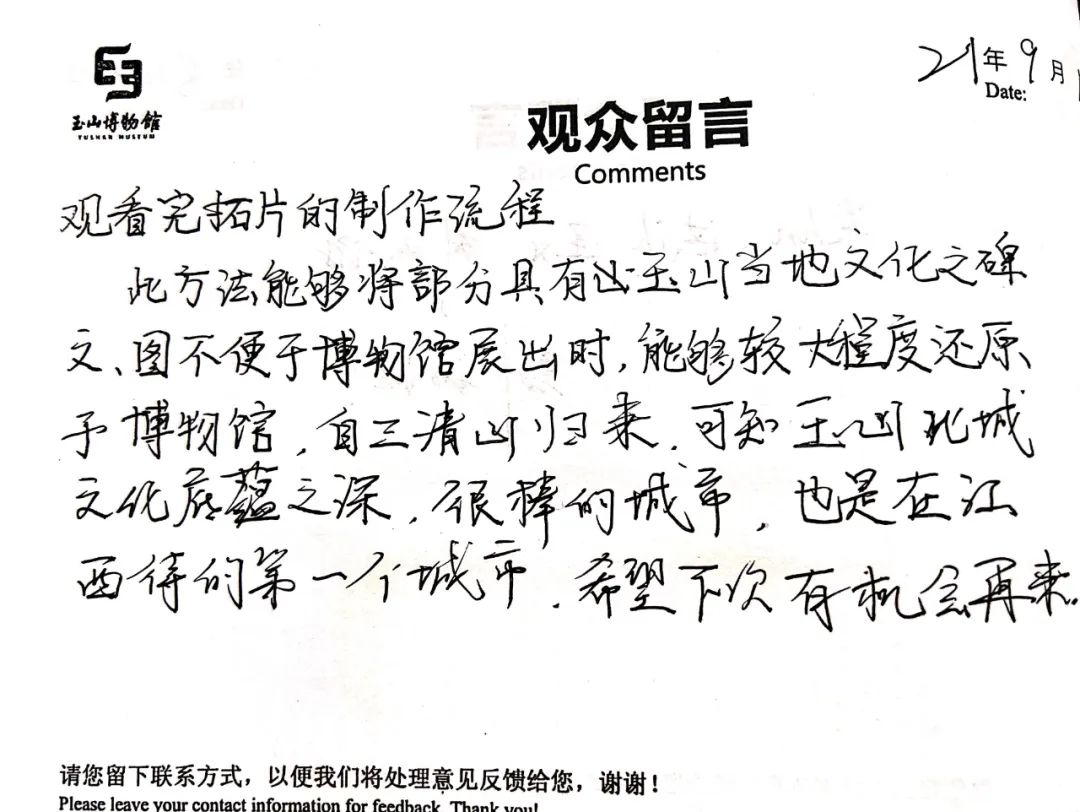 玉山博物馆
YUSHAN MUSEUM
21年9月
Date:
观众留言
Comments
观看完拓片的制作流程
此方法能够将部分具有山玉山当地文化之碑
文、图不便于博物馆展出时,能够较大程度还原
予博物馆,自三清山归来,可知玉山此城
文化底蕴之深,很棒的城市,也是在江
西待的第一个城市,希望下次有机会再来.
请您留下联系方式,以便我们将处理意见反馈给您,谢谢!
Please leave your contact information for feedback. Thank you!